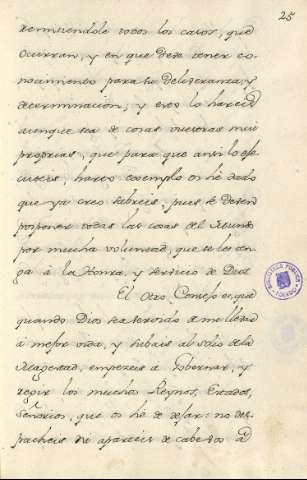 25
remitiendole todos los casos, que
ocurran, y en que deve tener co-
nocimiento para su deliberanza, y
determinacion, y esto lo hareis
aunque sea de cosas vuestras mui
proprias, que para que ansi lo efe-
cuteis, harto exemplo os hé dado
que yá creo sabreis, pues se deven
posponer todas las cosas del Mundo
por mucha voluntad, que se les en-
ga à la Honrra, y servicio de Dios.
El otro Consejo es, que
quando Dios sea servido de me llevar
à mejor vida, y subais al solio de la
Magestad, empeceis a Governar, y
regir los muchos Reynos, Estados,
Señorios, que os hé de dejar: no des-
pacheis ni aparteis de cabe vos à
BIBLIOTECA PÚBLICA
TOLEDO